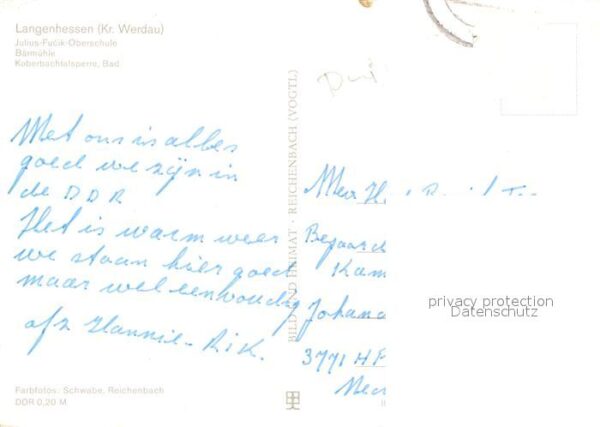 Langenhessen (Kr. Werdau)
Julius-Fučik-Oberschule
Bärmühle
Koberbachtalsperre, Bad
Met ons is alles
goed we zijn in
de DDR
Het is warm weer
we staan hier goed
maar wel eenvoudig
afz Hannie - Rik.
Farbfotos: Schwabe, Reichenbach
DDR 0,20 M
BILD UND HEIMAT · REICHENBACH (VOGTL)
Mevr H
Kam
Johana
3771 H
privacy protection
Datenschutz